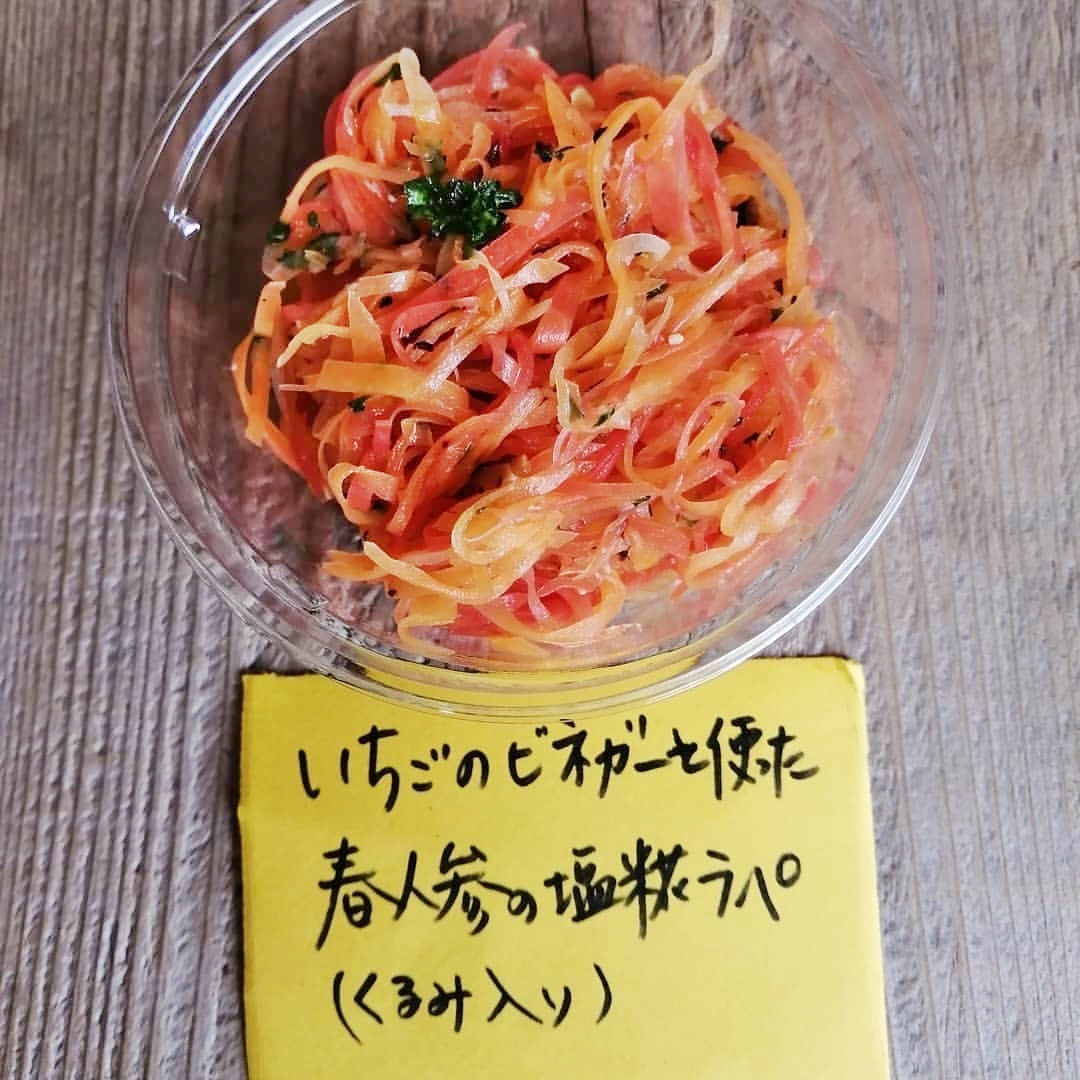 いちごのビネガーを使った
春人参の塩糀ラペ
(くるみ入り)